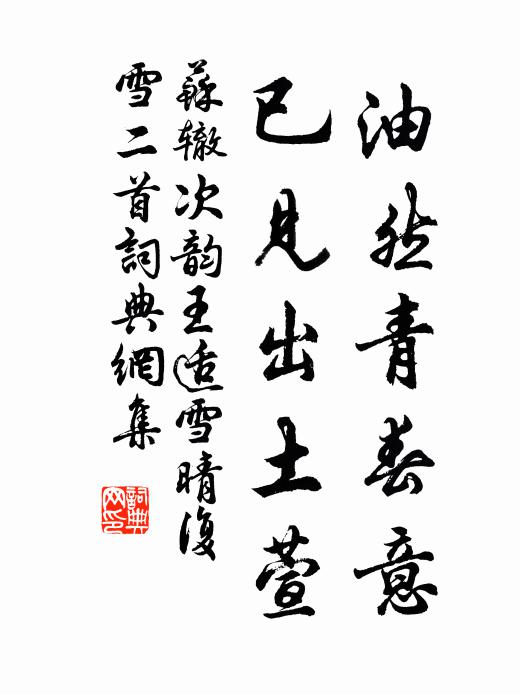 油然青春意
已見出土萱
蘇辙次韵王适雪晴復
雪二首詞典網集
詞典网印